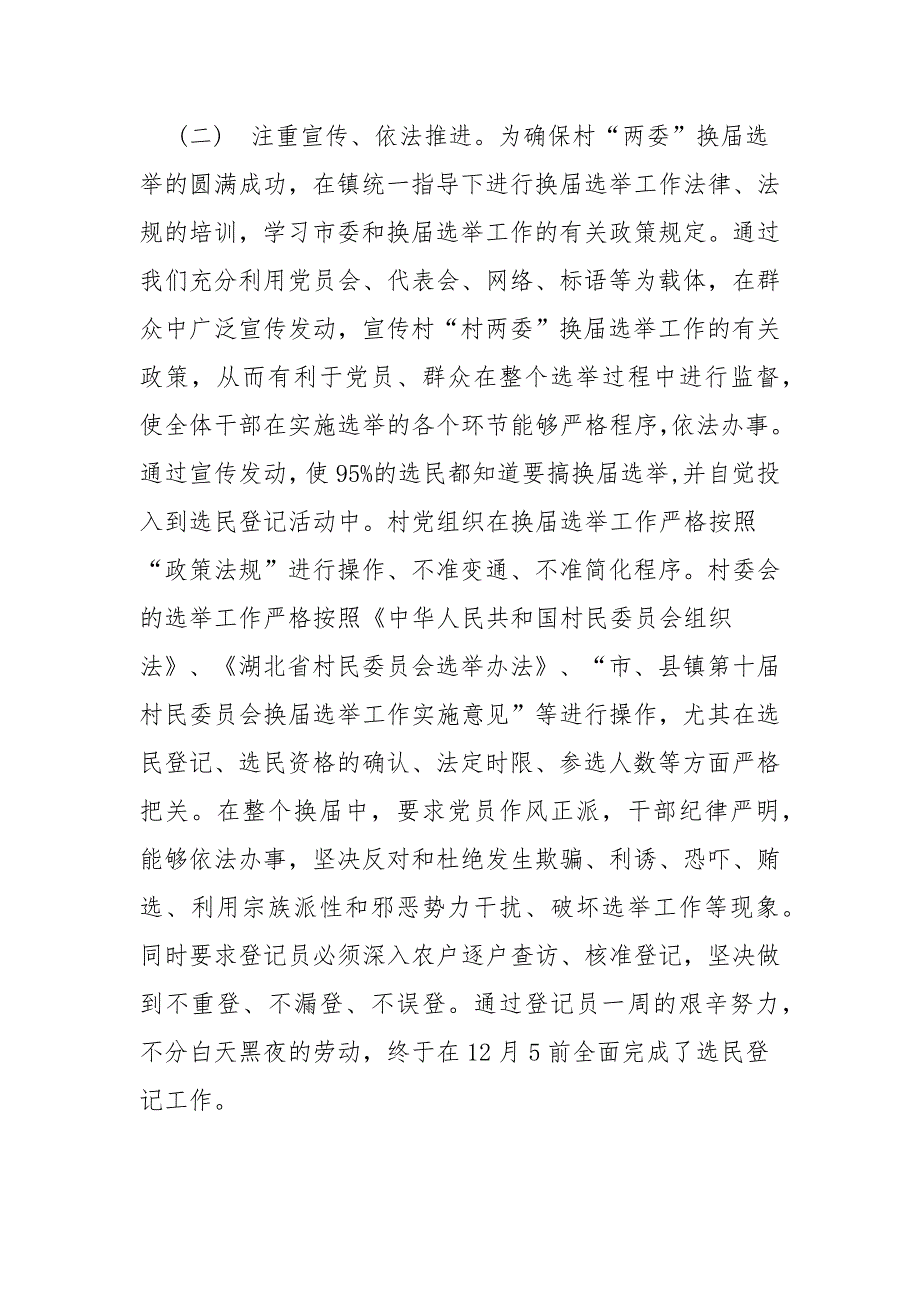 (二) 注重宣传、依法推进。为确保村“两委”换届选
举的圆满成功，在镇统一指导下进行换届选举工作法律、法
规的培训，学习市委和换届选举工作的有关政策规定。通过
我们充分利用党员会、代表会、网络、标语等为载体，在群
众中广泛宣传发动，宣传村“村两委”换届选举工作的有关
政策，从而有利于党员、群众在整个选举过程中进行监督，
使全体干部在实施选举的各个环节能够严格程序,依法办事。
通过宣传发动,使95%的选民都知道要搞换届选举,并自觉投
入到选民登记活动中。村党组织在换届选举工作严格按照
“政策法规”进行操作、不准变通、不准简化程序。村委会
的选举工作严格按照《中华人民共和国村民委员会组织
法》、《湖北省村民委员会选举办法》、“市、县镇第十届
村民委员会换届选举工作实施意见”等进行操作，尤其在选
民登记、选民资格的确认、法定时限、参选人数等方面严格
把关。在整个换届中，要求党员作风正派，干部纪律严明，
能够依法办事，坚决反对和杜绝发生欺骗、利诱、恐吓、贿
选、利用宗族派性和邪恶势力干扰、破坏选举工作等现象。
同时要求登记员必须深入农户逐户查访、核准登记，坚决做
到不重登、不漏登、不误登。通过登记员一周的艰辛努力，
不分白天黑夜的劳动，终于在12月5前全面完成了选民登
记工作。